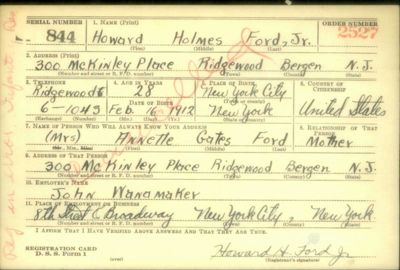 SERIAL NUMBER 1. NAME (Print) ORDER NUMBER
844 Howard Holmes Ford, Jr. 2527
(First) (Middle) (Last)
2. ADDRESS (Print)
300 McKinley Place Ridgewood Bergen N. J.
(Number and street or R. F. D. number) (Town) (County) (State)
3. TELEPHONE 4. AGE IN YEARS 5. PLACE OF BIRTH 6. COUNTRY OF CITIZENSHIP
Ridgewood 28 New York City
DATE OF BIRTH
6-1045 Feb. 16 1912 New York United States
(Exchange) (Number) (Mo.) (Day) (Yr.) (State or country)
7. NAME OF PERSON WHO WILL ALWAYS KNOW YOUR ADDRESS 8. RELATIONSHIP OF THAT PERSON
(Mrs) Annette Gates Ford Mother
(Mr., Mrs., Miss) (First) (Middle) (Last)
9. ADDRESS OF THAT PERSON
300 McKinley Place Ridgewood Bergen N. J.
(Number and street or R. F. D. number) (Town) (County) (State)
10. EMPLOYER'S NAME
John Wanamaker
11. PLACE OF EMPLOYMENT OR BUSINESS
8th Street & Broadway New York City, New York
(Number and street or R. F. D. number) (Town) (County) (State)
I AFFIRM THAT I HAVE VERIFIED ABOVE ANSWERS AND THAT THEY ARE TRUE.
REGISTRATION CARD
D. S. S. Form 1 (over) Howard H. Ford Jr
(Registrant's signature)